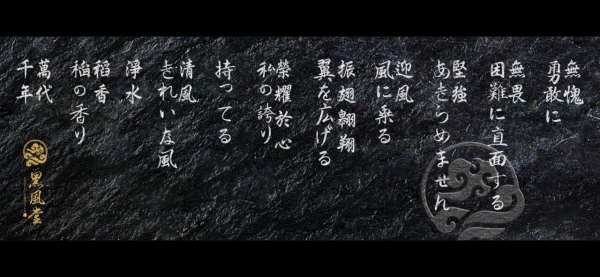 無愧
勇敢に
無畏
困難に直面する
堅強
あきつめません
迎風
風に乗る
振翅翱翔
翼を広げる
榮耀於心
私の誇り
持ってる
清風
きれいな風
淨水
稻香
稲の香り
萬代
千年
黑風堂